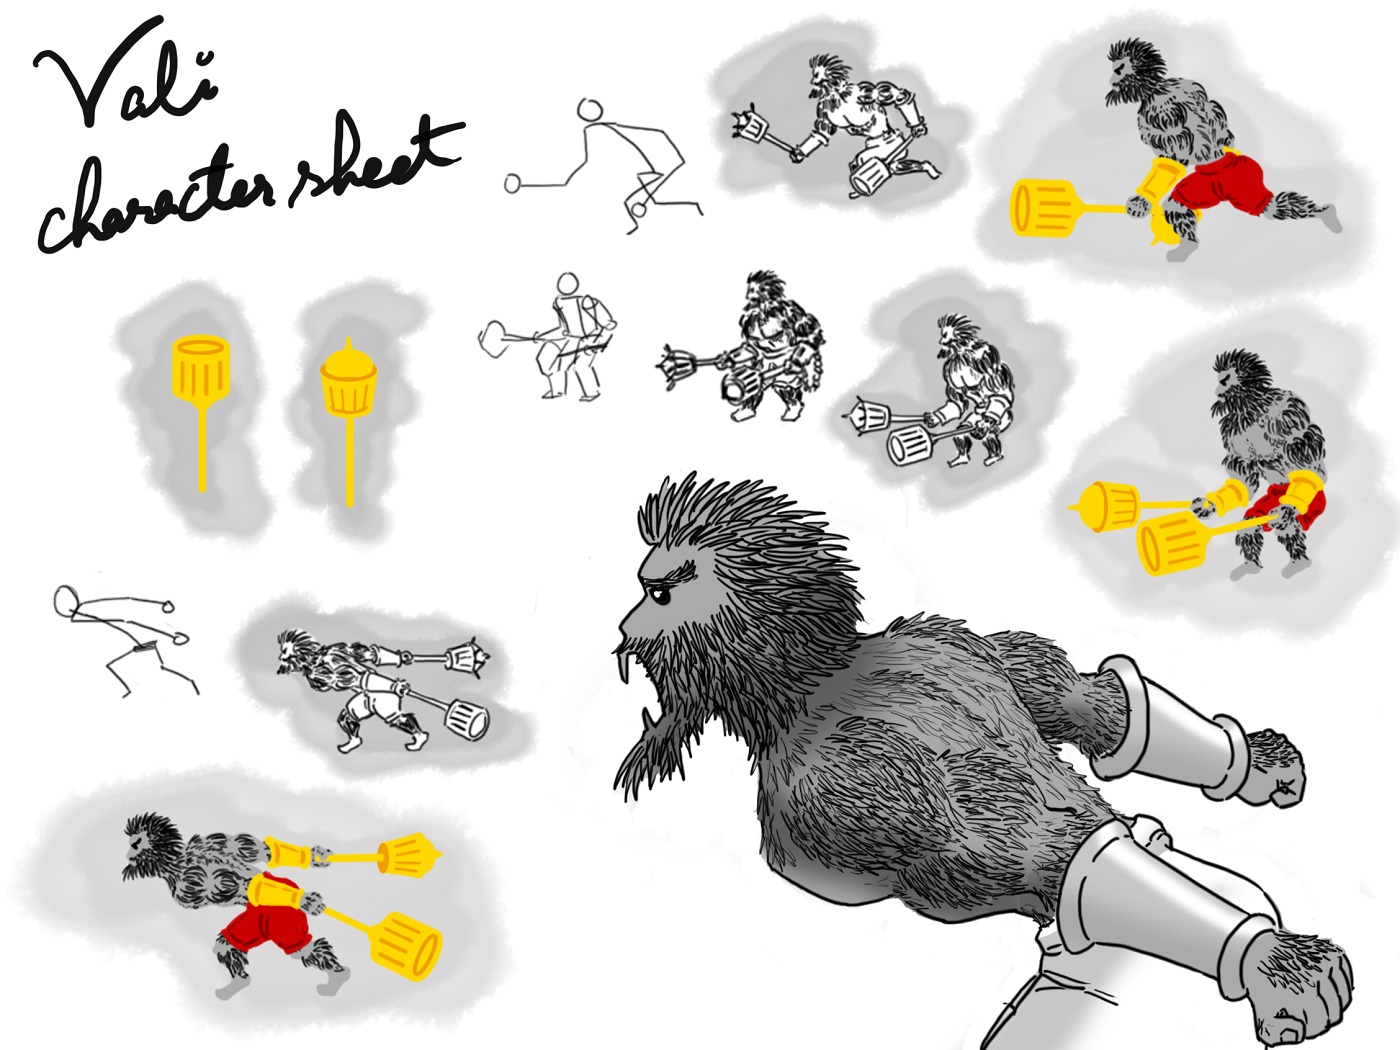 Vali
character sheet